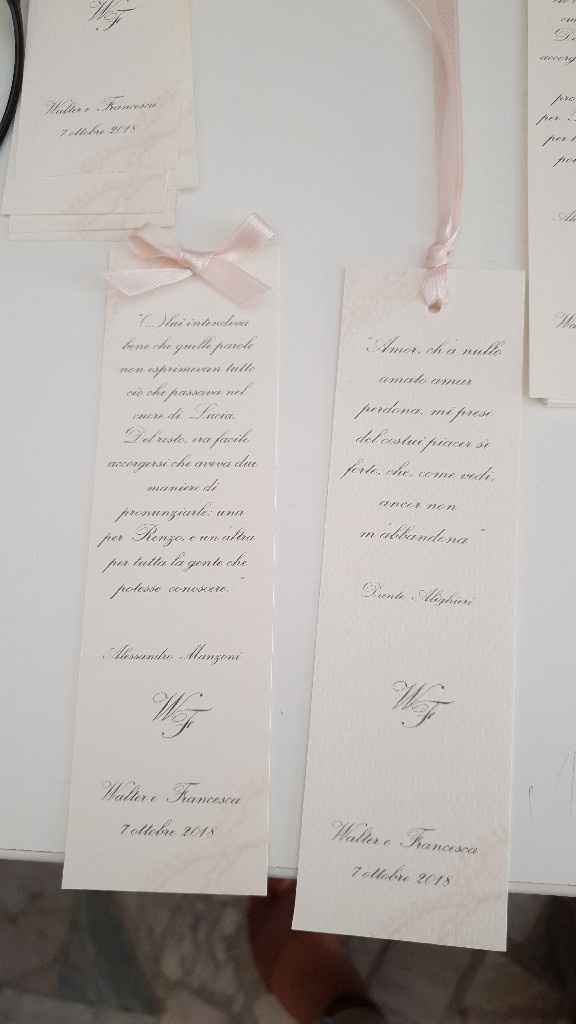 WF
Walter e Francesca
7 ottobre 2018
"(...) lui intendeva
bene che quelle parole
non esprimevan tutto
ciò che passava nel
cuore di Lucia.
Del resto, era facile
accorgersi che aveva due
maniere di
pronunziarle: una
per Renzo, e un'altra
per tutta la gente che
potesse conoscere."
Alessandro Manzoni
WF
Walter e Francesca
7 ottobre 2018
"Amor, ch'a nullo
amato amar
perdona, mi prese
del costui piacer sì
forte, che, come vedi,
ancor non
m'abbandona"
Dante Alighieri
WF
Walter e Francesca
7 ottobre 2018
accorg
pro
per
per t
po
Ale
Wa